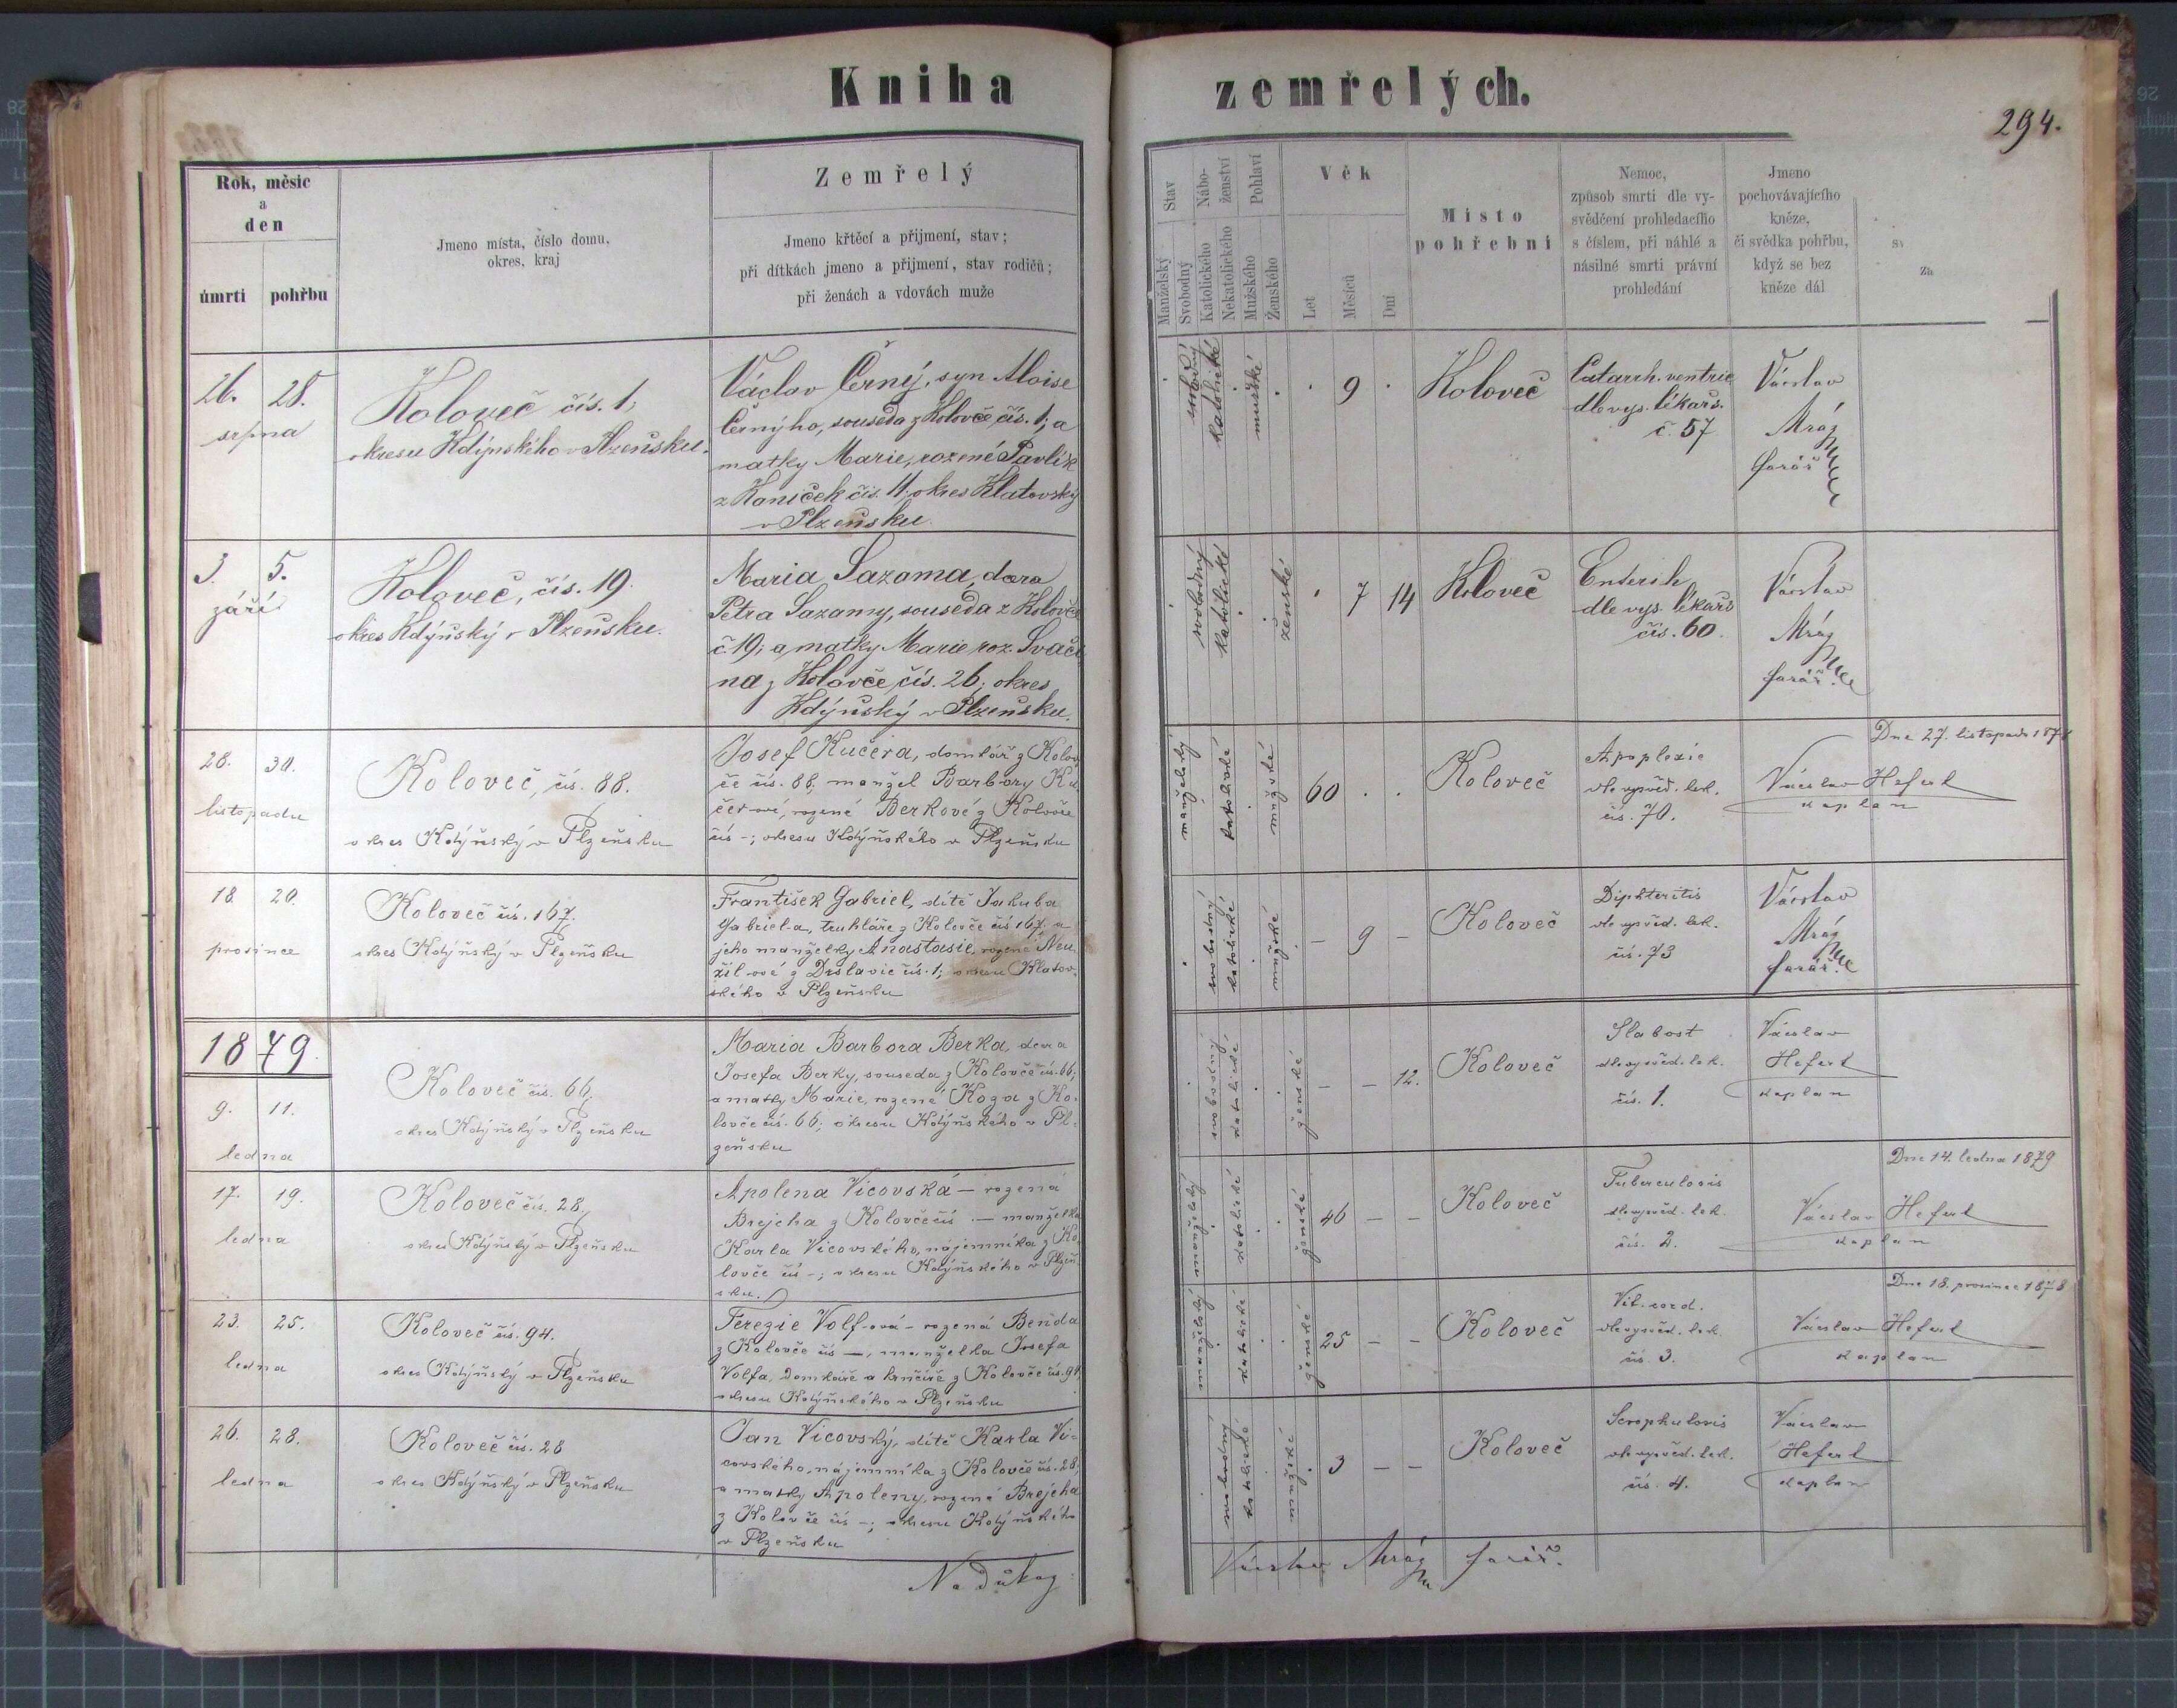 Kniha zemřelých.
294.
Rok, měsíc
a
den
úmrtí pohřbu
Jmeno místa, číslo domu,
okres, kraj
Zemřelý
Jmeno křtěcí a přijmení, stav;
při dítkách jmeno a přijmení, stav rodičů;
při ženách a vdovách muže
Stav
Manželský
Svobodný
Nábo-
ženství
Katolického
Nekatolického
Pohlaví
Mužského
Ženského
Věk
Let
Měsíců
Dní
Místo
pohřební
Nemoc,
způsob smrti dle vy-
svědčení prohledacího
s číslem, při náhlé a
násilné smrti právní
prohledání
Jmeno
pochovávajícího
kněze,
či svědka pohřbu,
když se bez
kněze dál
Za
26. 28.
srpna
Koloveč čís. 1;
okresu Kdýnského v Plzeňsku.
Václav Černý, syn Aloise
Černýho, souseda z Kolovče čís. 1; a
matky Marie, rozené Pavlík
z Kaniček čís. 11. okres Klatovský
v Plzeňsku.
svobodný
katolické
mužské
9
Koloveč
Catarrh. ventric
dle vys. lékařs.
č. 57
Václav
Mráz
farář
3. 5.
září
Koloveč, čís. 19.
okres Kdýňský v Plzeňsku.
Maria Sazama, dcera
Petra Sazamy, souseda z Kolovče
č. 19; a matky Marie roz. Svači
na z Kolovče čís. 26; okres
Kdýňský v Plzeňsku.
svobodný
katolické
ženské
7 14
Koloveč
Enterik
dle vys. lékařs
čís. 60.
Václav
Mráz
farář
28. 30.
listopadu
Koloveč, čís. 88.
okres Kdýňský v Plzeňsku
Josef Kučera, domkář z Kolov
če čís. 88, manžel Barbory Ku
čerové, rozené Berkové z Kolovče
čís -; okresu Kdýňského v Plzeňsku
manželský
katolické
mužské
60
Koloveč
Apoplexie
dle vysvěd. lek.
čís. 70.
Dne 27. listopadu 1878
Václav Hefert
kaplan
18. 20.
prosince
Koloveč čís. 167.
okres Kdýňský v Plzeňsku
František Gabriel, dítě Jakuba
Gabriel-a, truhláře z Kolovče čís 167; a
jeho manželky Anastasie, rozené Neu
žil-ové z Drslavic čís. 1; okresu Klatov-
ského v Plzeňsku
svobodný
katolické
mužské
- 9 -
Koloveč
Diphteritis
dle vysvěd. lek.
čís. 73
Václav
Mráz
farář
1879.
9. 11.
ledna
Koloveč čís. 66,
okres Kdýňský v Plzeňsku
Maria Barbora Berka, dcera
Josefa Berky, souseda z Kolovče čís. 66;
a matky Marie, rozené Koza z Ko-
lovče čís. 66; okresu Kdýňského v Pl-
zeňsku
svobodný
katolické
ženské
- - 12.
Koloveč
Slabost
dle vysvěd. lek.
čís. 1.
Václav
Hefert
kaplan
17. 19.
ledna
Koloveč čís. 28,
okres Kdýňský v Plzeňsku
Apolena Vicovská - rozená
Brejcha z Kolovče čís. - manželka
Karla Vicovského, nájemníka z Ko
lovče čís -; okresu Kdýňského v Plzeň
sku.
manželský
katolické
ženské
46 - -
Koloveč
Tuberculosis
dle vysvěd. lek.
čís. 2.
Dne 14. ledna 1879
Václav Hefert
kaplan
23. 25.
ledna
Koloveč čís. 94.
okres Kdýňský v Plzeňsku
Terezie Volf-ová - rozená Benda
z Kolovče čís -, manželka Josefa
Volfa, domkáře a krnčíře z Kolovče čís. 94,
okresu Kdýňského v Plzeňsku
manželský
katolické
ženské
25 - -
Koloveč
Vit. cord.
dle vysvěd. lek.
čís. 3.
Dne 18. prosince 1878
Václav Hefert
kaplan
26. 28.
ledna
Koloveč čís. 28
okres Kdýňský v Plzeňsku
Jan Vicovský, dítě Karla Vi-
covského, nájemníka z Kolovče čís. 28;
a matky Apoleny, rozené Brejcha
z Kolovče čís -; okresu Kdýňského
v Plzeňsku
svobodný
katolické
mužské
3 - -
Koloveč
Scrophulosis
dle vysvěd. lek.
čís. 4.
Václav
Hefert
kaplan
Na důkaz
Václav Mráz farář.